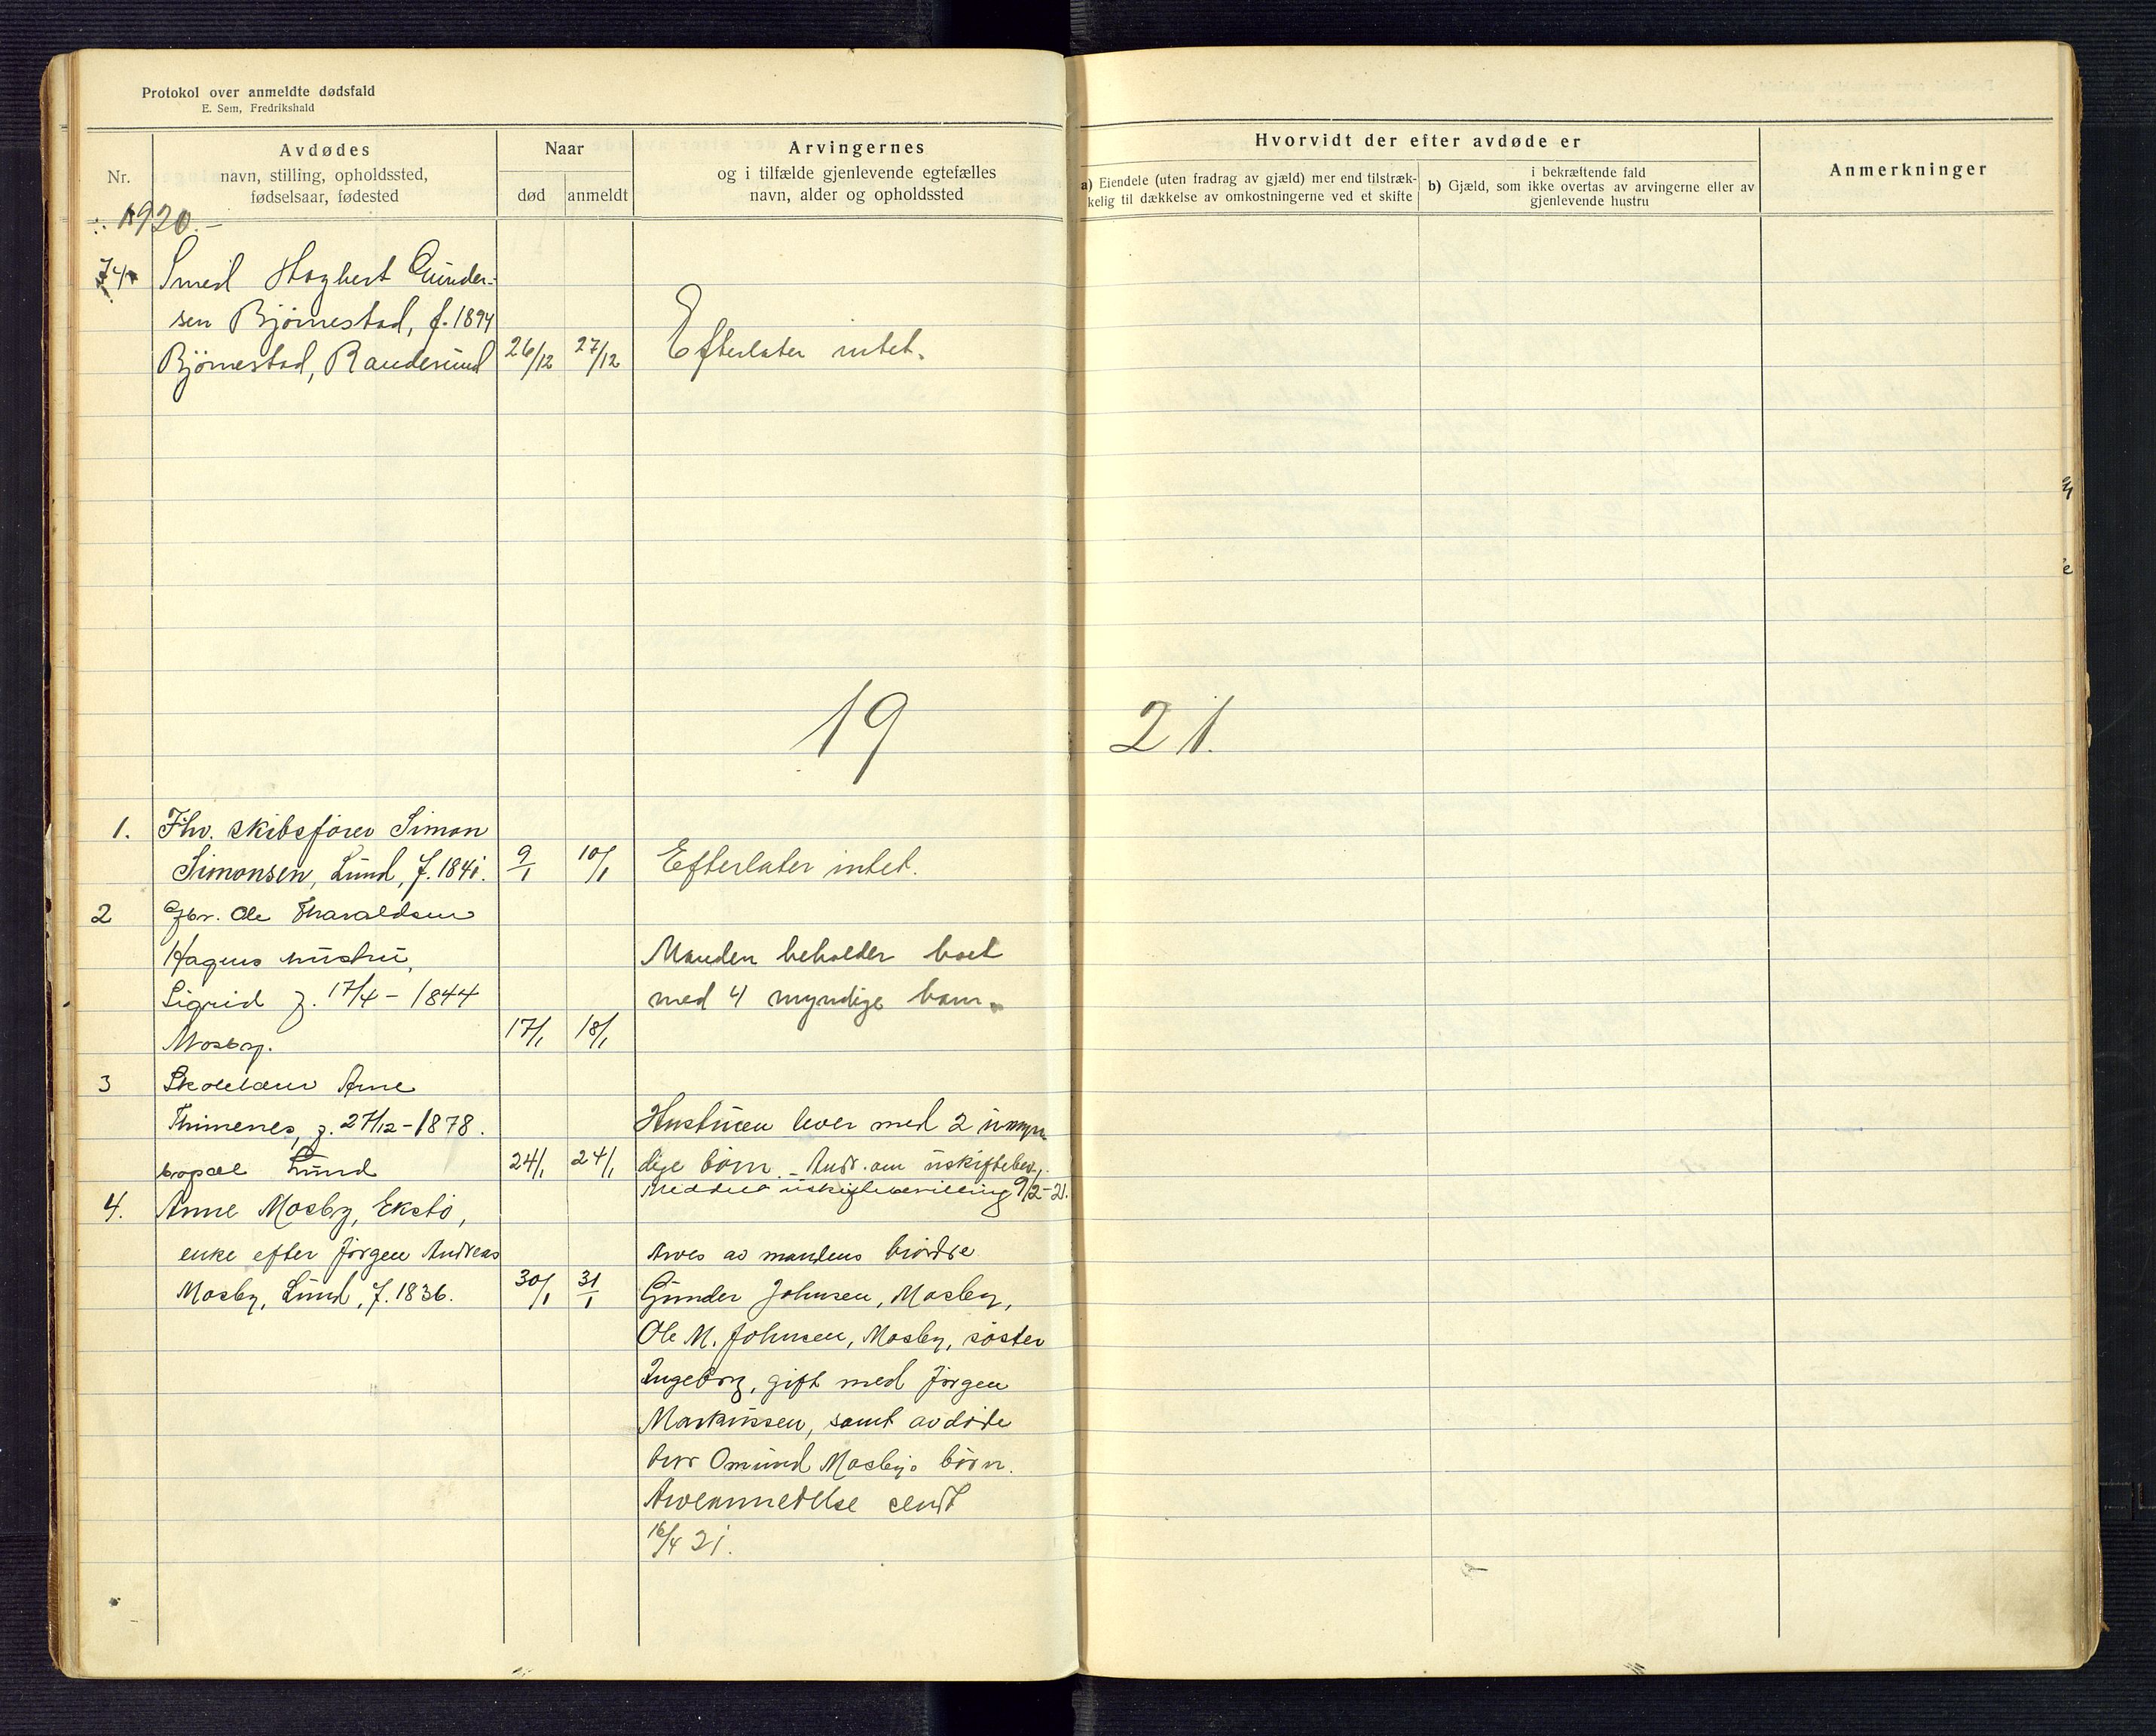 Protokol over anmeldte dødsfald
E. Sem, Fredrikshald
Nr.
Avdødes
navn, stilling, opholdssted,
fødselsaar, fødested
Naar
død
anmeldt
Arvingernes
og i tilfælde gjenlevende egtefælles
navn, alder og opholdssted
Hvorvidt der efter avdøde er
a) Eiendele (uten fradrag av gjæld) mer end tilstræk-
kelig til dækkelse av omkostningerne ved et skifte
i bekræftende fald
b) Gjæld, som ikke overtas av arvingerne eller av
gjenlevende hustru
Anmerkninger
1920.-
74 Smed Hagbert Gunder-
sen Bjørnestad, f. 1894
Bjørnestad, Randesund 26/12 27/12 Efterlater intet.
19 21.
1. Fhv. skibsfører Simon
Simonsen, Lund, f. 1841. 9/1 10/1 Efterlater intet.
2 Gbr. Ole Tharaldsen
Hagens hustru,
Sigrid f. 17/4 - 1844
Mosby. 17/1 18/1
Manden beholder boet
med 4 myndige barn.
3 Skolelærer Arne
Thimenes, f. 27/12 - 1878.
bopæl Lund 24/1 24/1
Hustruen lever med 2 umyn
dige børn - Andr. om uskiftebev.
Meddelt uskiftebevilling 9/2-21.
4. Anne Mosby, Ekstø,
enke efter Jørgen Andreas
Mosby, Lund, f. 1836. 30/1 31/1
Arves av mandens brødre
Gunder Johnsen, Mosby,
Ole M. Johnsen, Mosby, søster
Ingeborg, gift med Jørgen
Markussen, samt avdøde
bror Omund Mosbys børn.
Arveanmeldelse sendt
16/4 21.